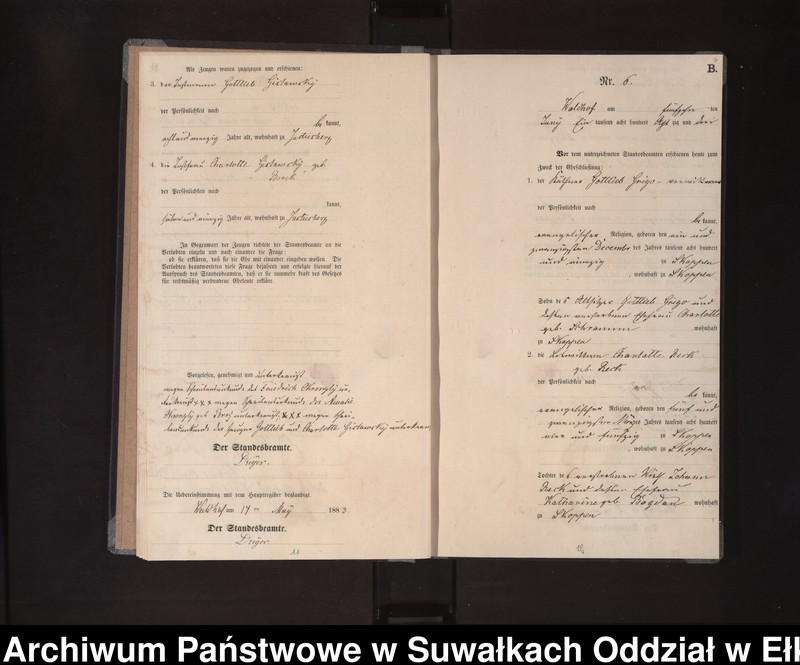 Als Zeugen waren zugezogen und erschienen:
3. der Gottlieb Gislawsky
der Persönlichkeit nach
be kannt,
Jahre alt, wohnhaft zu
4. die Charlotte Gislawsky geb.
der Persönlichkeit nach
kannt,
Jahre alt, wohnhaft zu
In Gegenwart der Zeugen richtete der Standesbeamte an die
Verlobten einzeln und nach einander die Frage:
ob sie erklären, daß sie die Ehe mit einander eingehen wollen. Die
Verlobten beantworteten diese Frage bejahend und erfolgte hierauf der
Ausspruch des Standesbeamten, daß er sie nunmehr kraft des Gesetzes
für rechtmäßig verbundene Eheleute erkläre.
Vorgelesen, genehmigt und unterkreuzt
wegen Schreibensunkunde des Friedrich
xxx wegen Schreibensunkunde der
geb. unterkreuzt, xxx wegen
der Zeugen Gottlieb und Charlotte Gislawsky
Der Standesbeamte.
Dreyer.
Die Uebereinstimmung mit dem Hauptregister beglaubigt.
am 17ten May 1883
Der Standesbeamte.
Dreyer.
11
B.
Nr. 6.
Waldhof am fünfzehn ten
Juny Ein tausend acht hundert Acht zig und drei
Vor dem unterzeichneten Standesbeamten erschienen heute zum
Zweck der Eheschließung:
1. der Käthner Gottlieb Grigo
der Persönlichkeit nach
be kannt,
evangelischer Religion, geboren den ein und
zwanzigsten December des Jahres tausend acht hundert
und vierzig zu Skoppen
, wohnhaft zu Skoppen
Sohn des Altsitzer Gottlieb Grigo und
dessen verstorbenen Ehefrau Charlotte
geb. Schramm wohnhaft
zu Skoppen
2. die Charlotte Reck
geb. Reck
der Persönlichkeit nach
be kannt,
evangelischer Religion, geboren den fünf und
zwanzigsten März des Jahres tausend acht hundert
vier und fünfzig zu Skoppen
, wohnhaft zu Skoppen
Tochter des verstorbenen Wirth Johann
Reck und dessen Ehefrau
Katharine geb. Bogdan wohnhaft
zu Skoppen
Archiwum Państwowe w Suwałkach Oddział w Ełk